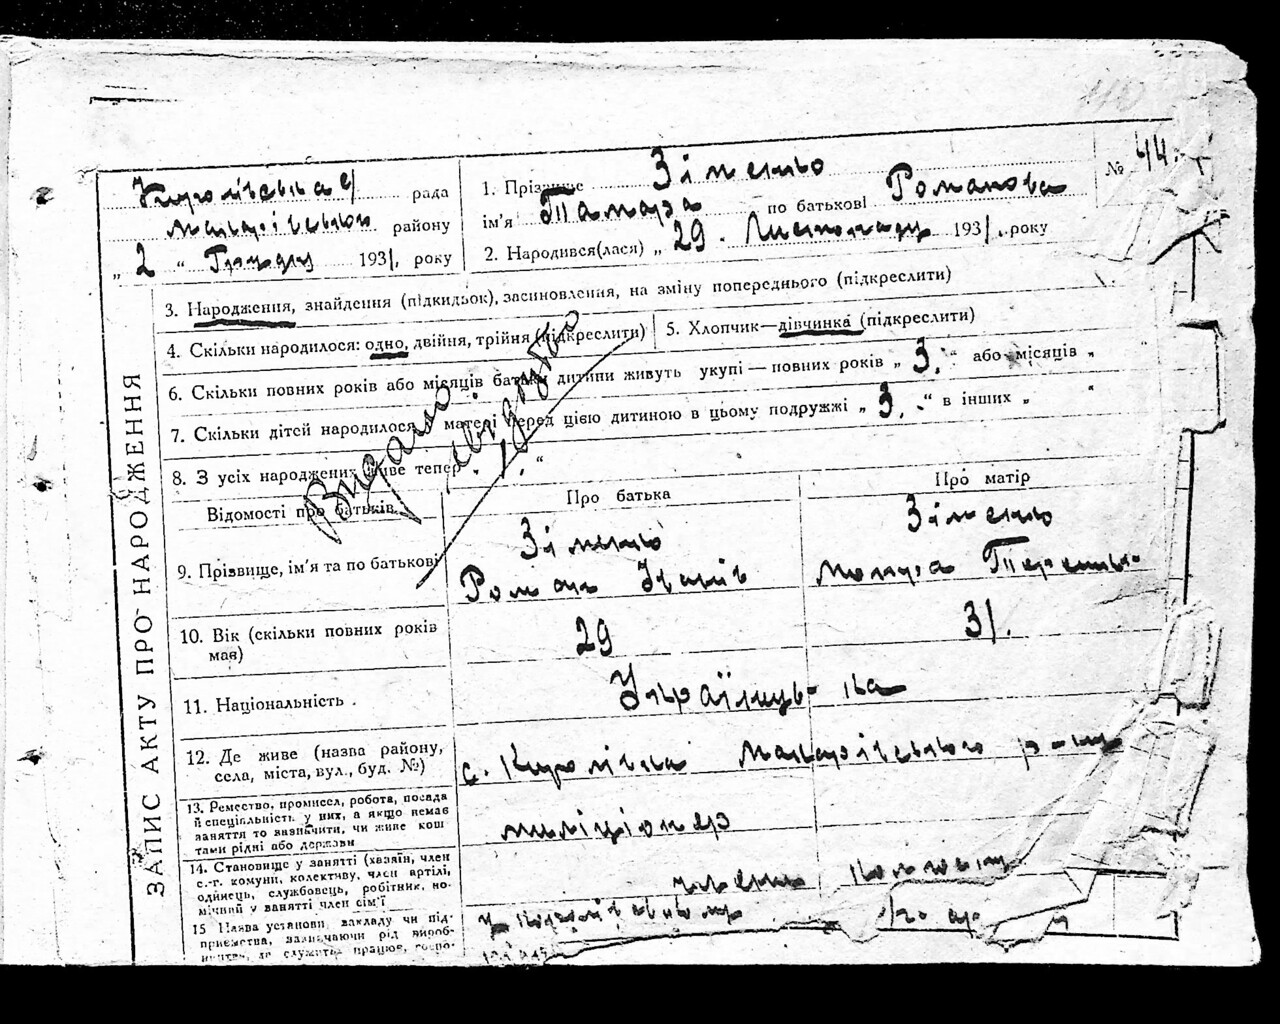 40
Королівська рада
Макарівського району
„ 2 " Грудня 1931. року
1. Прізвище Зіненко
ім'я Тамара по батькові Романова
2. Народився(лася) „ 29. Листопаду 1931. року
№ 44.
3. Народження, знайдення (підкидьок), засиновлення, на зміну попереднього (підкреслити)
4. Скільки народилося: одно, двійня, трійня (підкреслити)
5. Хлопчик—дівчинка (підкреслити)
6. Скільки повних років або місяців батьки дитини живуть укупі — повних років „ 3. " або місяців „ "
7. Скільки дітей народилося матері перед цією дитиною в цьому подружжі „ 3. " в інших „ "
8. З усіх народжених живе тепер „ 1. "
Видано
свідоцтво
ЗАПИС АКТУ ПРО НАРОДЖЕННЯ
Відомості про батьків
Про батька
Про матір
9. Прізвище, ім'я та по батькові
Зіненко
Роман Іванів
Зіненко
10. Вік (скільки повних років мав)
29
31.
11. Національність .
Українець- ка
12. Де живе (назва району, села, міста, вул., буд. №)
с. Королівка Макарівського р-ну
13. Ремество, промисел, робота, посада
й спеціяльність у них, а якщо немав
заняття то визначити, чи живе кош
тами рідні або держави
міліціонер
14. Становище у занятті (хазяїн, член
с.-г. комуни, колективу, член артілі,
одинець, службовець, робітник, по-
мічний у занятті член сім'ї
член колгоспу
15 Назва установи, закладу чи під-
приємства, зазначаючи рід вироб-
ництва, де служить, працює, госпо-